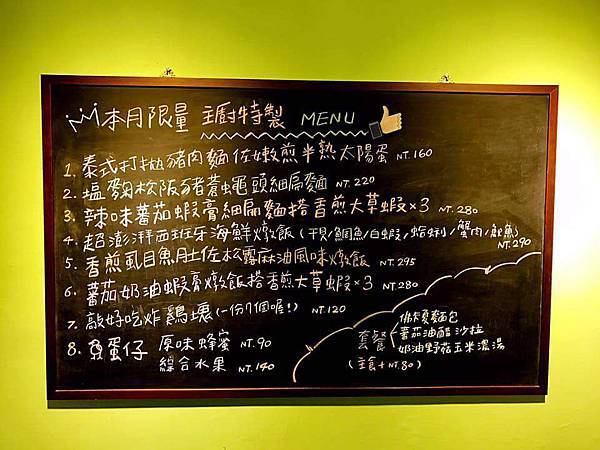 本月限量 主廚特製 MENU
1. 泰式打拋豬肉麵佐嫩煎半熟太陽蛋 NT.160
2. 塩麴松阪豬蒼蠅頭細扁麵 NT.220
3. 辣味蕃茄蝦膏細扁麵搭香煎大草蝦×3 NT.280
4. 超澎湃西班牙海鮮燉飯(干貝/鯛魚/白蝦/蛤蜊/蟹肉/魷魚) NT.290
5. 香煎虱目魚肚佐松露麻油風味燉飯 NT.295
6. 蕃茄奶油蝦膏燉飯搭香煎大草蝦×3 NT.280
7. 敲好吃炸鷄塊(一份7個喔!) NT.120
8. 雞蛋仔 原味蜂蜜 NT.90
綜合水果 NT.140
套餐
(主食+NT.80)
麵包
蕃茄油醋沙拉
奶油野菇玉米濃湯